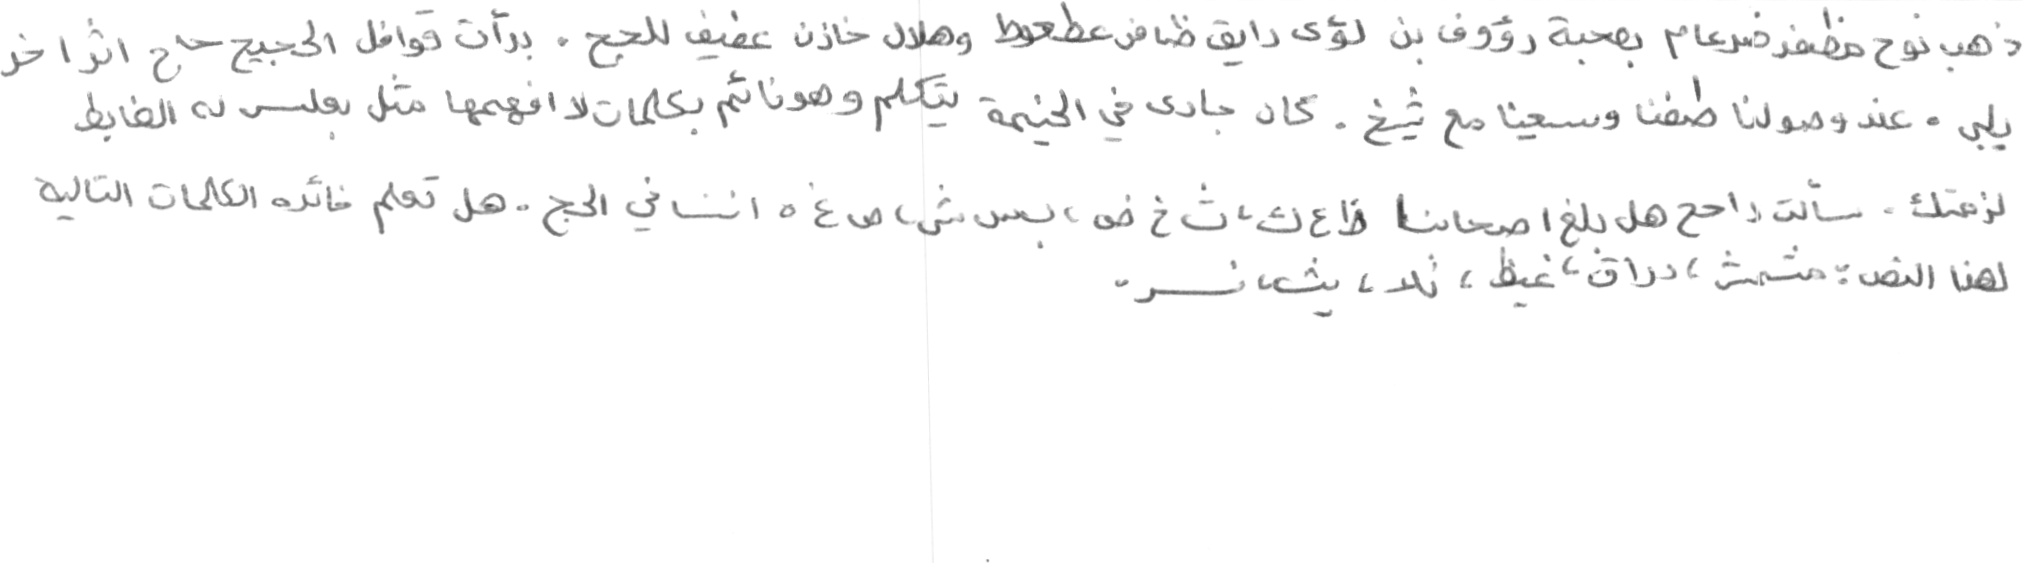 ذهب نوح مظفر ضرغام بصحبة رؤوف بن لؤى رايق ظافر عطعوط وهلال خازن عفيف للحج . بدأت قوافل الحجيج حاج اثر اخر
يلبي . عند وصولنا طفنا وسعينا مع شيخ . كان جارى في الخيمة يتكلم وهو نائم بكلمات لا افهمها مثل بعلبس نه الضابط
لزعتك . سألت راجح هل بلغ اصحابنا ظ ع ك ، ث خ ض ، بس ش ، ص غ ه اننا في الحج . هل تعلم فائده الكلمات التالية
لهذا النص : مشمش ، دراق ، غيظ ، ذلا ، يث ، نسر .